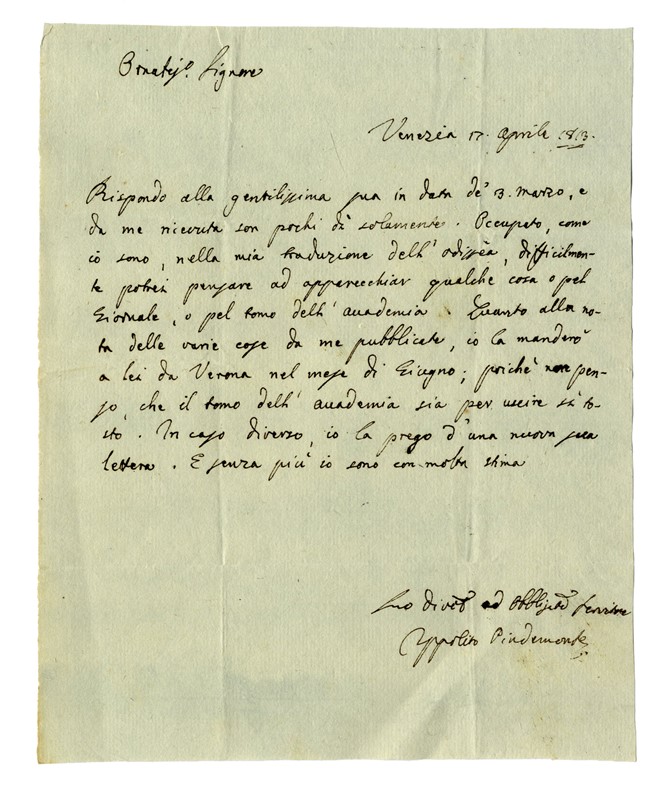 Ornatiſs.º Signore
Venezia 17. Aprile 1813.
Rispondo alla gentiliſsima sua in data de' 3. marzo, e
da me ricevuta son pochi dì solamente. Occupato, come
io sono, nella mia traduzione dell'odissèa, difficilmen-
te potrei pensare ad apparecchiar qualche cosa o pel
Giornale, o pel tomo dell'academia. Quanto alla no-
ta delle varie cose da me pubblicate, io la manderò
a lei da Verona nel mese di Giugno; poichè non pen-
so, che il tomo dell'academia sia per uscire sì to-
sto. In caso diverso, io la prego d'una nuova sua
lettera. E senza più io sono con molta stima
Suo divoṫ.º ed obbligat.º servitore
Ippolito Pindemonte